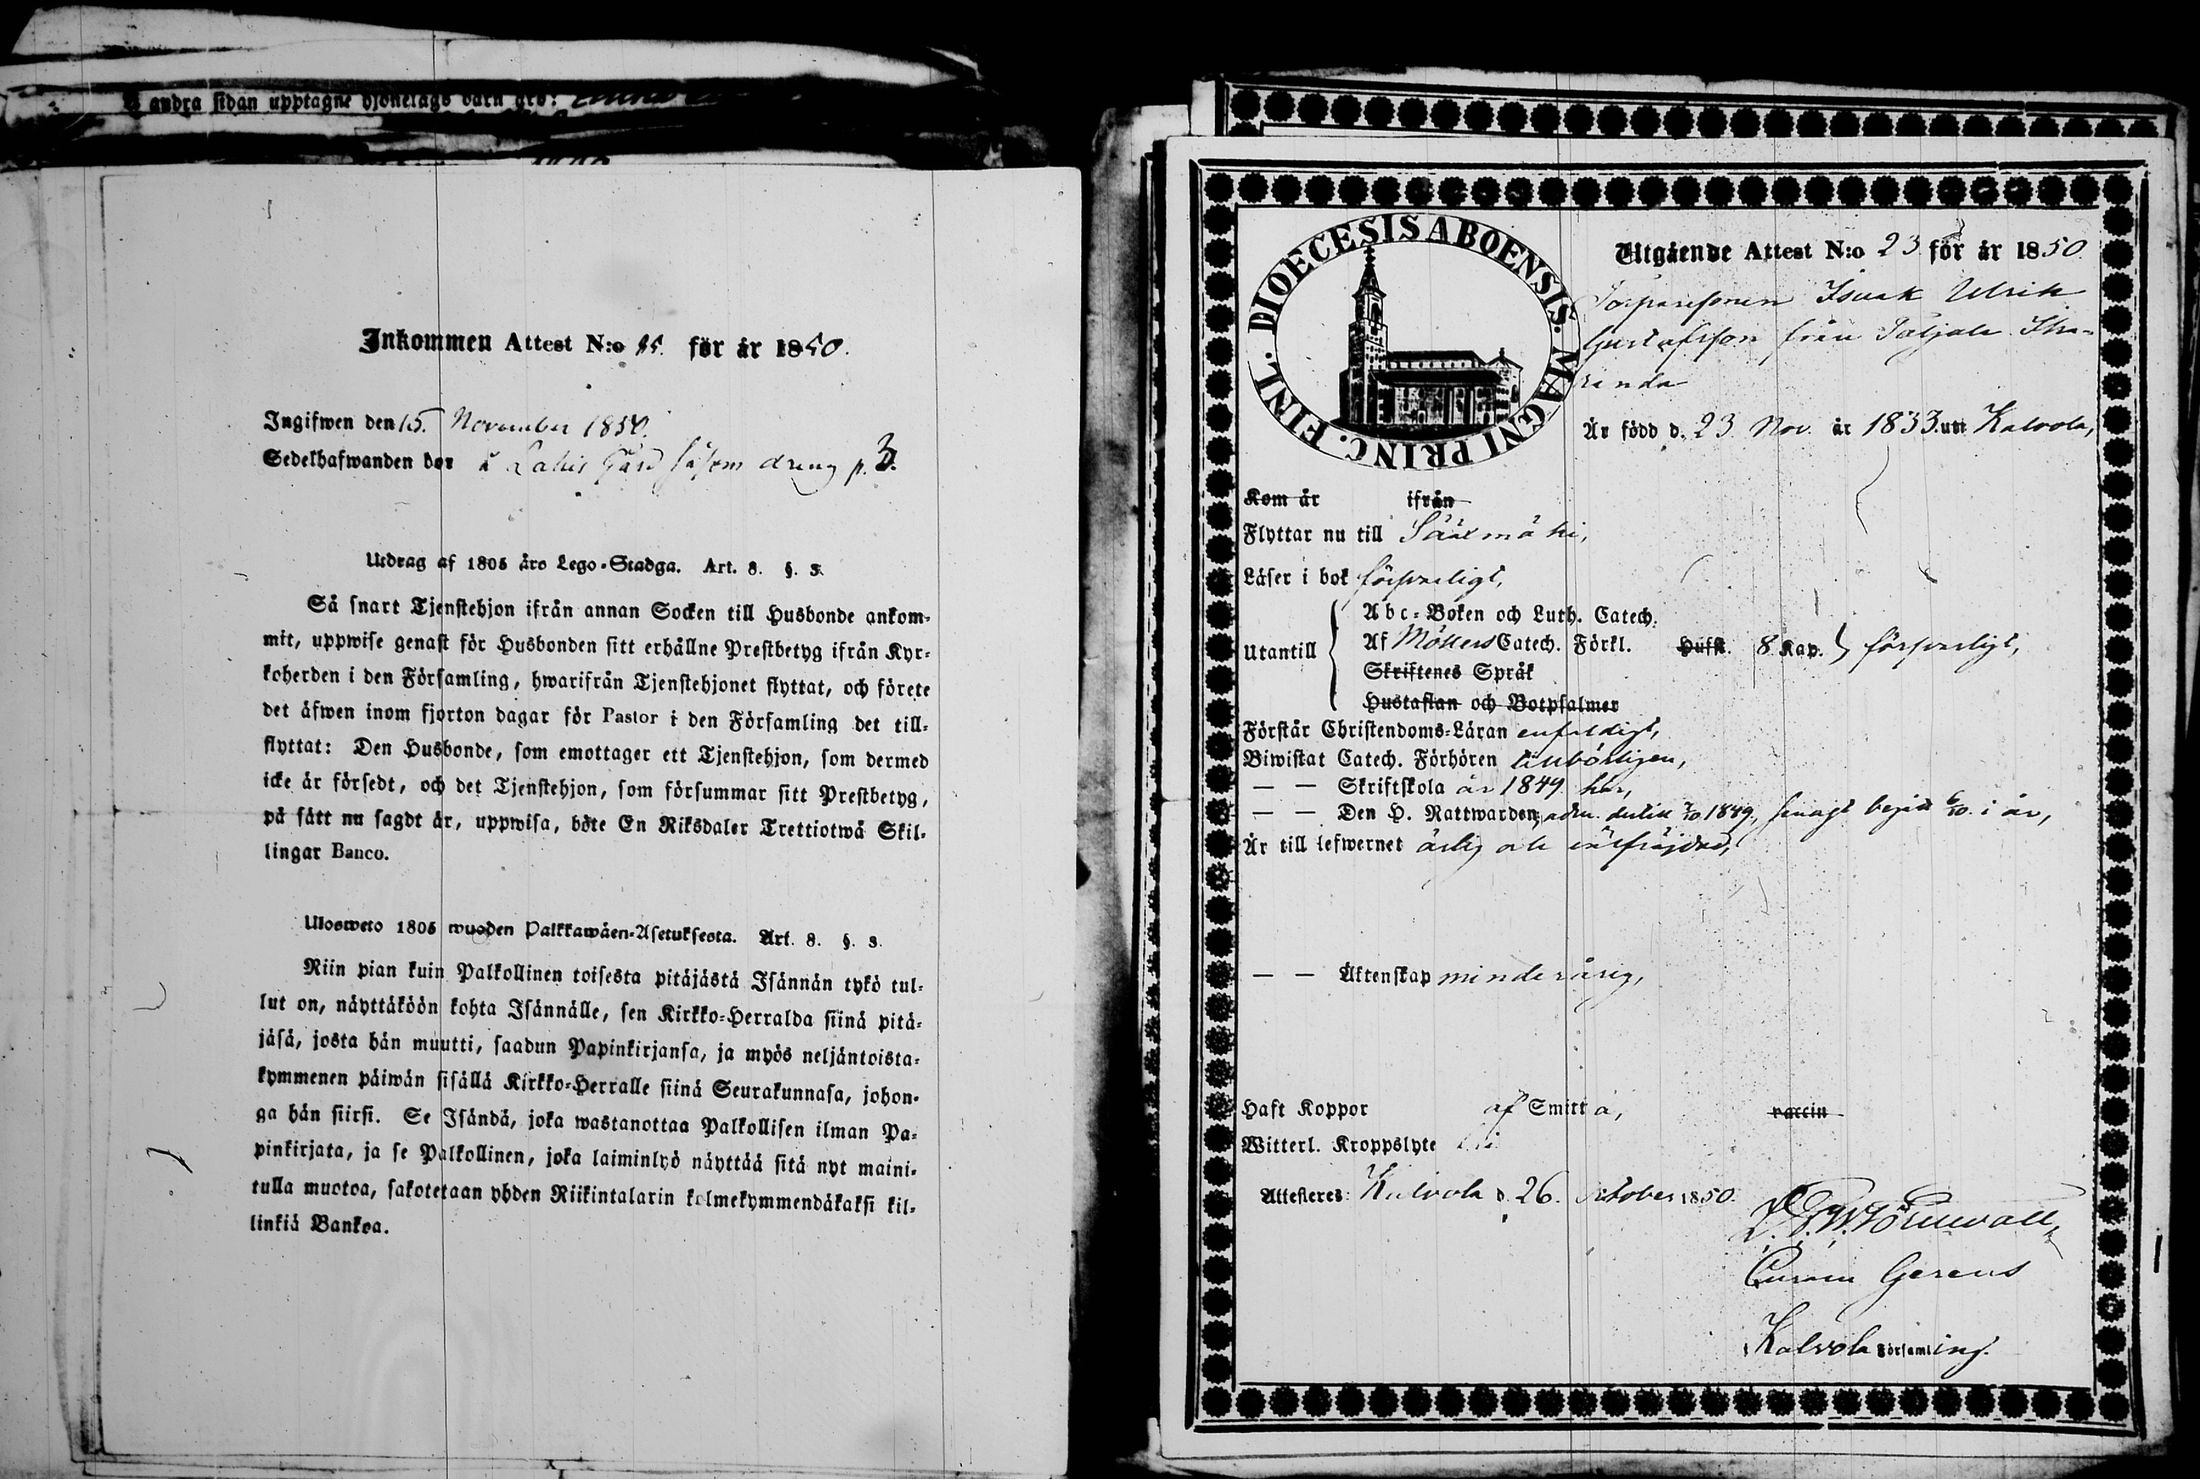 andra sidan upptagne hjonelags barn äro:
Inkommen Attest N:o 95. för år 1850.
Ingifwen den 15. November 1850.
Sedelhafwanden bor å Lahis Gård såsom dreng p. 3.
Utdrag af 1805 års Lego-Stadga. Art. 8. §. 3.
Så snart Tjenstehjon ifrån annan Socken till Husbonde ankom-
mit, uppwise genast för Husbonden sitt erhållne Prestbetyg ifrån Kyr-
koherden i den Församling, hwarifrån Tjenstehjonet flyttat, och förete
det äfwen inom fjorton dagar för Pastor i den Församling det till-
flyttat: Den Husbonde, som emottager ett Tjenstehjon, som dermed
icke är försedt, och det Tjenstehjon, som försummar sitt Prestbetyg,
på sätt nu sagdt är, uppwisa, böte En Riksdaler Trettiotwå Skil-
lingar Banco.
Ulosweto 1805 wuoden Palkkawäen-Asetuksesta. Art. 8. §. 3.
Niin pian kuin Palkollinen toisesta pitäjästä Isännän tykö tul-
lut on, näyttäköön kohta Isännälle, sen Kirkko-Herralda siinä pitä-
jäsä, josta hän muutti, saadun Papinkirjansa, ja myös neljäntoista-
kymmenen päiwän sisällä Kirkko-Herralle siinä Seurakunnasa, johon-
ga hän siirsi. Se Isändä, joka wastanottaa Palkollisen ilman Pa-
pinkirjata, ja se Palkollinen, joka laiminlyö näyttää sitä nyt maini-
tulla muotoa, sakotetaan yhden Riikintalarin kolmekymmendäkaksi kil-
linkiä Bankoa.
DIOECESIS ABOENSIS. MAGNI PRINC. FINL.
Utgående Attest N:o 23 för år 1850
Torparesonen Isaak Ulrik
Gustafsson, från Patjala Stra-
randa
Är född d. 23 Nov. år 1833. uti Kalvola,
Kom år ifrån
Flyttar nu till Sääxmäki,
Läser i bok försvarligt,
Abc-Boken och Luth. Catech.
Utantill Af Möllers Catech. Förkl. Hufst. 8 Kap. } försvarligt,
Skriftenes Språk
Hustaflan och Botpsalmer
Förstår Christendoms-Läran enfaldigt,
Biwistat Catech. Förhören tillbörligen,
— — Skriftskola år 1849 här,
— — Den H. Nattwarden, adm. dertill 1849, senast begått i år,
Är till lefwernet ärlig och välfräjdad,
— — Äktenskap minderårig,
Haft Koppor af Smitta, vaccin
Witterl. Kroppslyte
Attesteres: Kalvola d. 26. October 1850.
Törnwall,
Curam Gerens
Kalvola Församling.